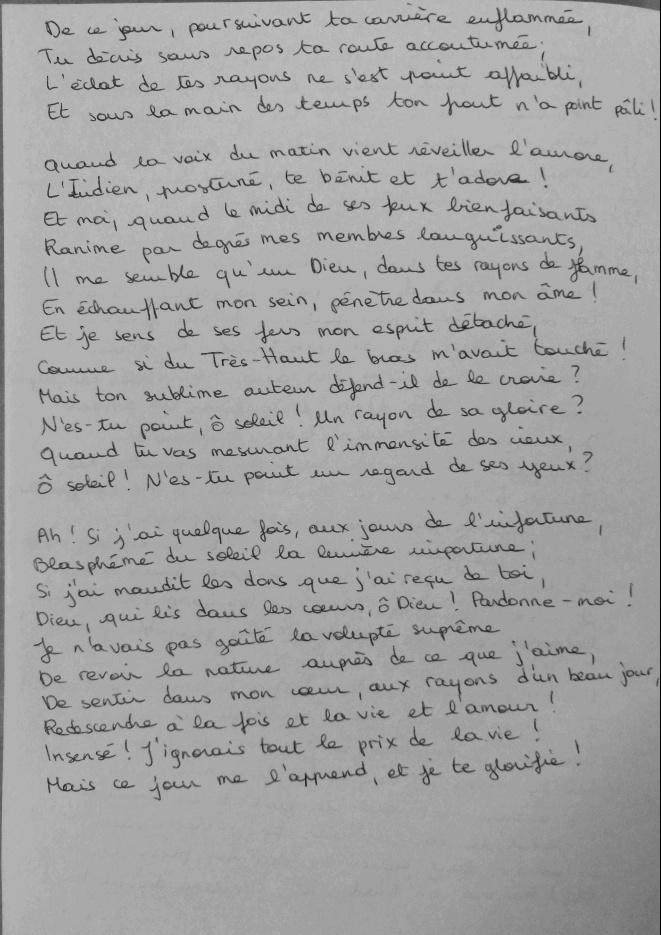 De ce jour, poursuivant ta carrière enflammée,
Tu décris sans repos ta route accoutumée;
L'éclat de tes rayons ne s'est point affaibli,
Et sous la main des temps ton front n'a point pâli!
Quand la voix du matin vient réveiller l'aurore,
L'Indien, prosterné, te bénit et t'adore!
Et moi, quand le midi de ses feux bienfaisants
Ranime par degrés mes membres languissants,
Il me semble qu'un Dieu, dans tes rayons de flamme,
En échauffant mon sein, pénètre dans mon âme!
Et je sens de ses fers mon esprit détaché,
Comme si du Très-Haut le bras m'avait touché!
Mais ton sublime auteur défend-il de le croire?
N'es-tu point, ô soleil! Un rayon de sa gloire?
Quand tu vas mesurant l'immensité des cieux,
Ô soleil! N'es-tu point un regard de ses yeux?
Ah! Si j'ai quelque fois, aux jours de l'infortune,
Blasphémé du soleil la lumière importune;
Si j'ai maudit les dons que j'ai reçu de toi,
Dieu, qui lis dans les cœurs, ô Dieu! Pardonne-moi!
Je n'avais pas goûté la volupté suprême
De revoir la nature auprès de ce que j'aime,
De sentir dans mon cœur, aux rayons d'un beau jour,
Redescendre à la fois et la vie et l'amour!
Insensé! J'ignorais tout le prix de la vie!
Mais ce jour me l'apprend, et je te glorifie!